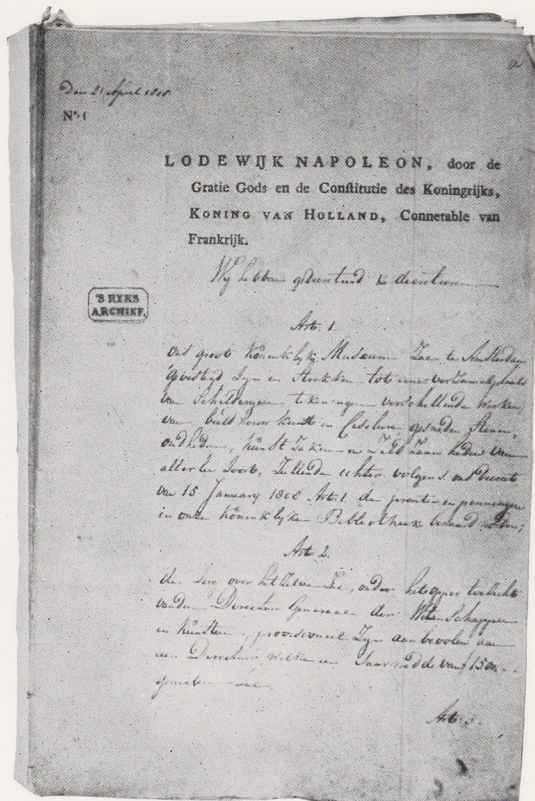 a
Den 21 April 1808
No. 1
LODEWIJK NAPOLEON, door de
Gratie Gods en de Conſtitutie des Koningrijks,
KONING VAN HOLLAND, Connetable van
Frankrijk.
Wij hebben gedecreteerd & decreteeren
'S RYKS
ARCHIEF.
Art. 1.
ons groot Koninklijk Museum zal te Amsterdam
gevestigd zijn en strekken tot eene verzamelplaats
van Schilderijen tekeningen verschillende werken
van beeldhouwkunst en Ciselure gesneden Steenen,
oudheden, kunst Zaken en Zeldzaamheden van
allerlei Soort, Zullende echter volgens ons decreet
van 15 January 1808 Art. 1. de prenten en penningen
in onze Koninklijke Bibliotheek
Art. 2.
de Zorg over het Zelve Zal, onder het opper toezicht
van den Directeur Generaal der Wetenschappen
en Kunsten, provisioneel Zijn aanbevolen aan
een Directeur welke een Jaarwedde van
Art. 3.